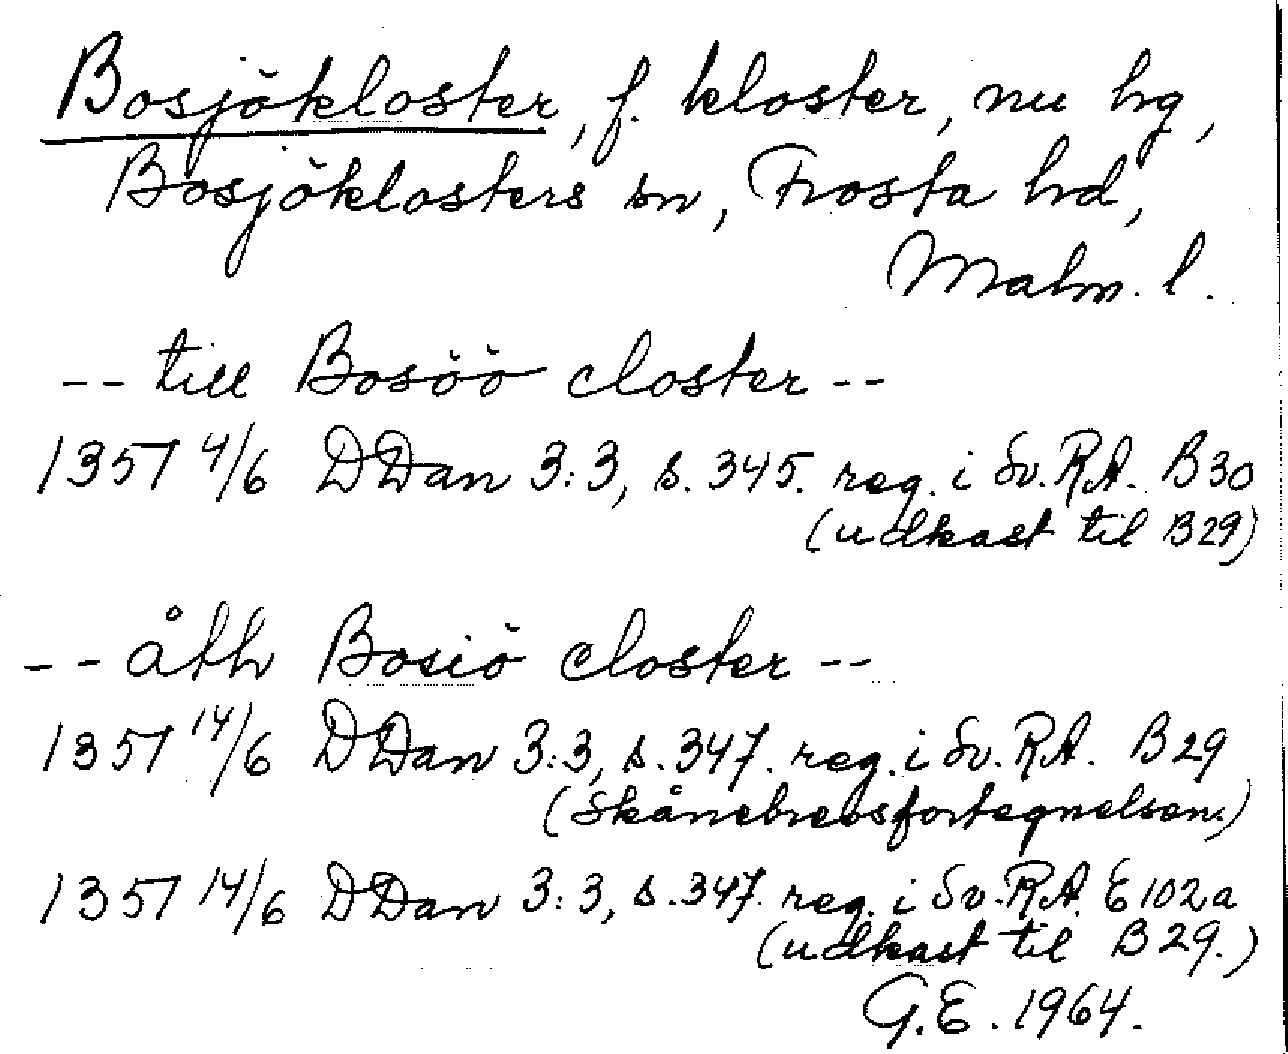 Bosjökloster, f. kloster, nu hg,
Bosjöklosters sn, Frosta hd,
Malm. l.
-- till Bosöö closter --
1357 4/6 DDan 3:3, s. 345. reg. i Sv. RA. B30
(udkast til B29)
-- åth Bosiö closter --
1357 14/6 DDan 3:3, s. 347. reg. i Sv. RA. B29
(Skånebrevsfortegnelsen.)
1357 14/6 DDan 3:3, s. 347. reg. i Sv. RA. E102a
(udkast til B29.)
G.E. 1964.